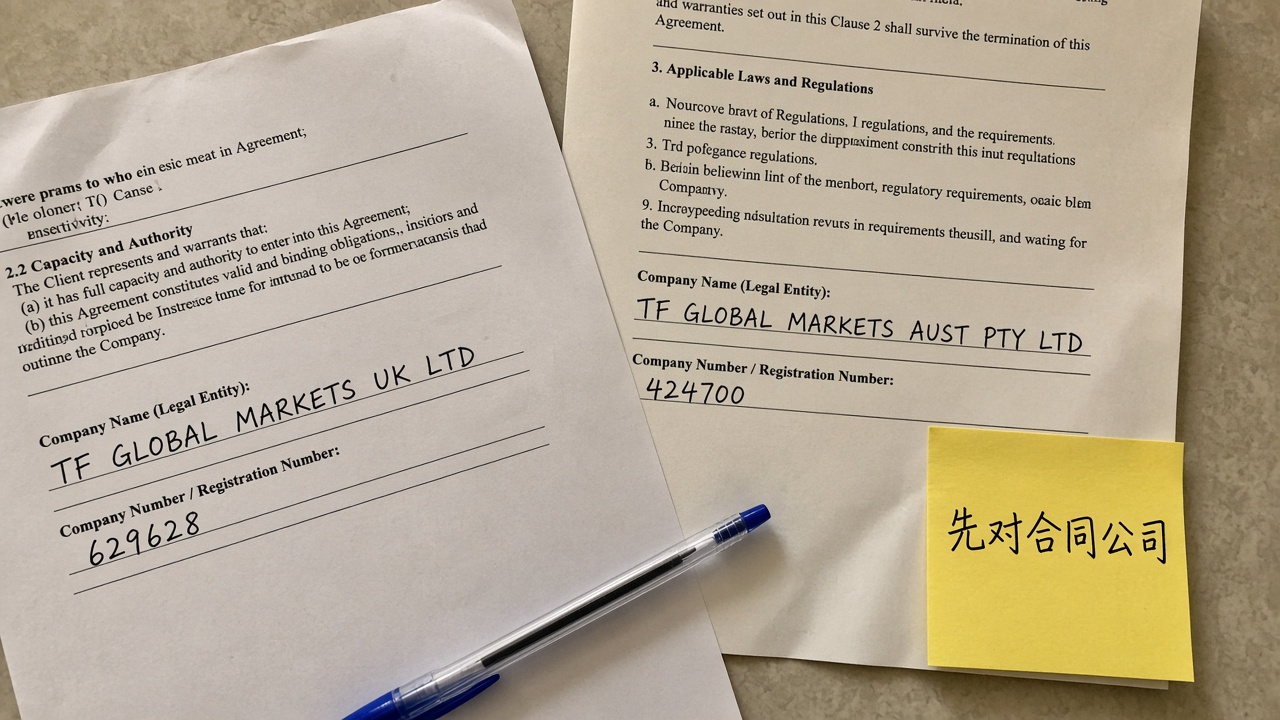 were prams to who ein esic meat in Agreement;
2.2 Capacity and Authority
The Client represents and warrants that:
(a) it has full capacity and authority to enter into this Agreement;
(b) this Agreement constitutes valid and binding obligations,, insiciors and
outinne the Company.
Company Name (Legal Entity):
TF GLOBAL MARKETS UK LTD
Company Number / Registration Number:
629628
and warranties set out in this Clause 2 shall survive the termination of this
Agreement.
3. Applicable Laws and Regulations
a. Nourcove bravt of Regulations, I regulations, and the requirements.
ninee the rastay, berior the constrith this inut requltations
3. Trd pofegance regulations.
b. beliewinn lint of the menbort, regulatory requirements,
9. revurs in requirements theusill, and wating for
the Company.
Company Name (Legal Entity):
TF GLOBAL MARKETS AUST PTY LTD
Company Number / Registration Number:
424700
先对合同公司